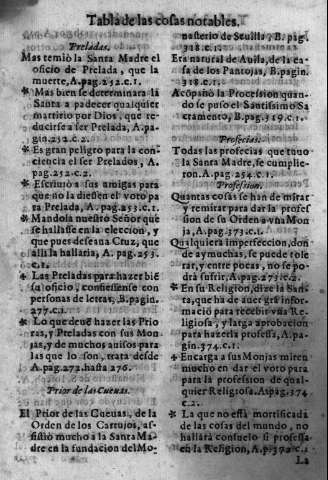 Tabla de las cosas notables.
Preladas.
Mas temiò la Santa Madre el
oficio de Prelada, que la
muerte, A.pag.252.c.1.
* Mas bien se determinara la
Santa a padecer qualquier
martirio por Dios, que re-
ducirse a ser Prelada, A.pa-
gin.252.c.2.
* Es gran peligro para la con-
ciencia el ser Prelados, A.
pag.252.c.2.
* Escriuiò a sus amigas para
que no la diessen el voto pa
ra Prelada, A.pag.253.c.1.
* Mandola nuestro Señor que
se hallasse en la eleccion, y
que pues deseaua Cruz, que
alli la hallaria, A.pag.253.
c.1.
+ Las Preladas para hazer biē
su oficio, confiessense con
personas de letras, B.pagin.
277.c.1.
* Lo que deuē hazer las Prio
ras, y Preladas con sus Mon
jas, y de muchos auisos para
las que lo son, trata desde
A.pag.272.hasta 276.
Prior de las Cueuas.
El Prior de las Cueuas, de la
Orden de los Cartujos, as-
sistiò mucho a la Santa Ma-
dre en la fundacion del Mo-
nasterio de Seuilla, B. pag.
318.c.1.
Era natural de Auila, de la ca-
sa de los Pantojas, B.pagin.
318.c.1.
Acōpañò la Procession quan-
do se puso el Santissimo Sa
cramento, B.pag.319.c.1.
Profecias.
Todas las profecias que tuuo
la Santa Madre, se cumplie-
ron. A.pag.254.c.1.
Profession.
Quantas cosas se han de mirar
y remirar para dar la profes
sion de su Orden a vna Mon
ja, A.pag.373.c.1.
Qualquiera imperfeccion, don
de ay muchas, se puede tole
rar, y entre pocas, no se po-
dra sufrir, A.pag.273.c.2.
* En su Religion, dize la San-
ta, que ha de auer grā infor-
macio para recebir vna Re-
ligiosa, y larga aprobacion
para hazerla professa, A.pa-
gin.374.c.1.
+ Encarga a sus Monjas miren
mucho en dar el voto para
para la profession de qual-
quier Religiosa. A.pag.374
c.2.
* La que no està mortificada
de las cosas del mundo, no
hallarà consuelo si professa
en la Religion, A.p.372.c.1
La